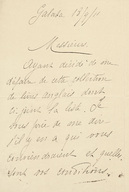 Messieurs
Ayant décidé de me
défaire de cette collection
de livres anglais dont
ci-joint la liste. Je
vous prie de me dire
s'il y en a qui vous
conviendraient et quelles
sont vos conditions.